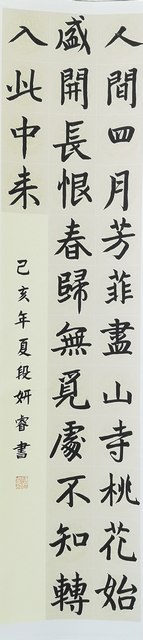 人間四月芳菲盡山寺桃花始
盛開長恨春歸無覓處不知轉
入此中来
己亥年夏段妍睿書